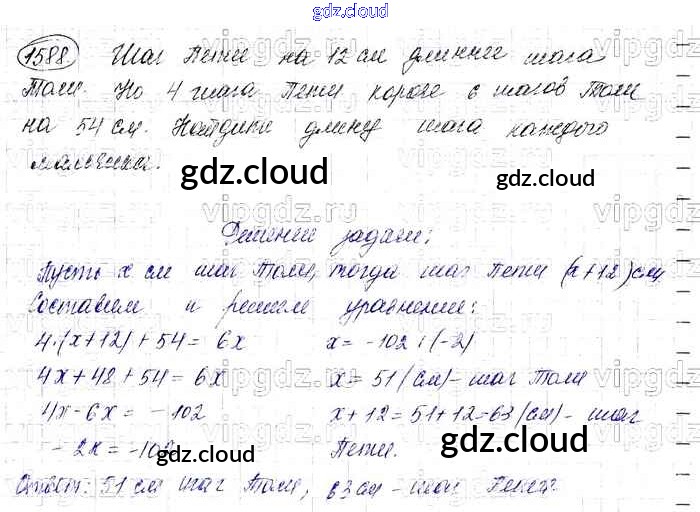 gdz.cloud
1588. Шаг Пети на 12 см длиннее шага
Толи. Но 4 шага Пети короче 6 шагов Толи
на 54 см. Найдите длину шага каждого
мальчика.
gdz.cloud
gdz.cloud
Решение задачи:
Пусть x см шаг Толи, тогда шаг Пети (x+12) см.
Составим и решим уравнение:
4·(x+12)+54=6x
x=-102:(-2)
4x+48+54=6x
x=51(см)-шаг Толи
4x-6x=-102
x+12=51+12=63(см)-шаг
-2x=-102
Пети.
gdz.cloud
gdz.cloud
Ответ: 51 см шаг Толи, 63 см - шаг Пети.